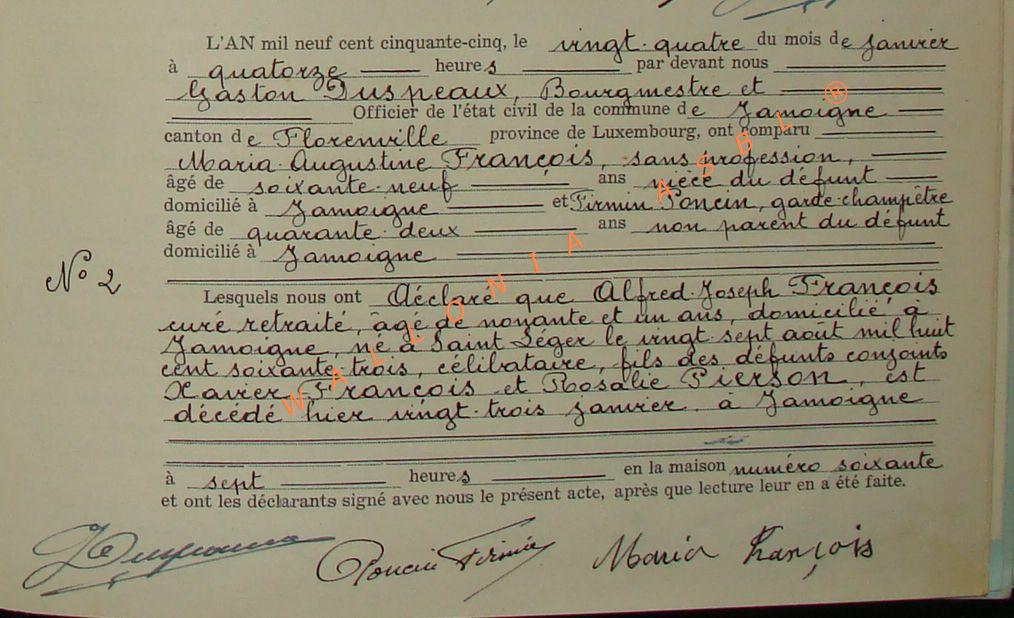 L'AN mil neuf cent cinquante-cinq, le vingt-quatre du mois de Janvier
à quatorze heures par devant nous
Gaston Duspeaux, Bourgmestre et
Officier de l'état civil de la commune de Jamoigne
canton de Florenville province de Luxembourg, ont comparu
Maria-Augustine François, sans profession,
âgé de soixante-neuf ans nièce du défunt
domicilié à Jamoigne et Firmin Poncin, garde-champêtre
âgé de quarante-deux ans non parent du défunt
domicilié à Jamoigne
N° 2
Lesquels nous ont déclaré que Alfred-Joseph François
curé retraité, âgé de nonante et un ans, domicilié à
Jamoigne, né à Saint Léger le vingt-sept août mil huit
cent soixante-trois, célibataire, fils des défunts conjoints
Xavier François et Rosalie Pierson, est
décédé hier vingt-trois janvier à Jamoigne
à sept heures en la maison numéro soixante
et ont les déclarants signé avec nous le présent acte, après que lecture leur en a été faite.
Poncin Firmin Maria François
WALLONIA ASBL ®